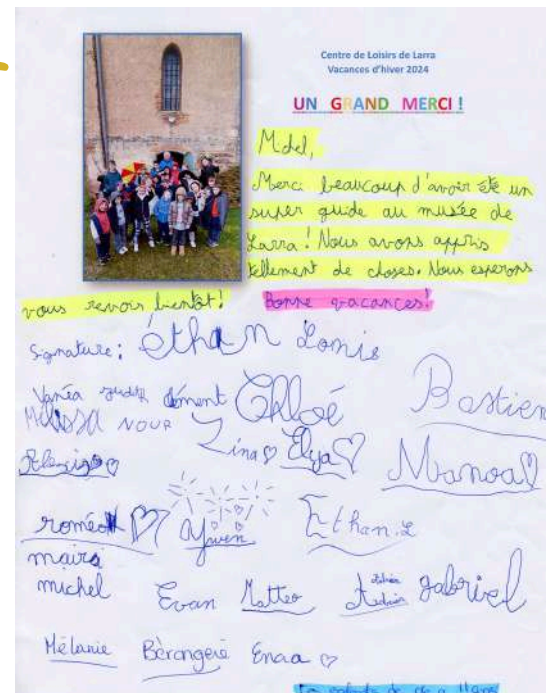 Centre de Loisirs de Larra
Vacances d'hiver 2024
UN GRAND MERCI !
Merci beaucoup d'avoir été un
super guide au musée de
Larra ! Nous avons appris
tellement de choses. Nous esperons
vous revoir bientôt! Bonne vacances!
Signature: Éthan Lomie
Vanéa clément Chloé Bastien
Mélissa NOUR Lina Elya Manoa
roméo Ywen Ethan.L
maira
michel Evan Matteo gabriel
Mélanie Bèrangère Enaa